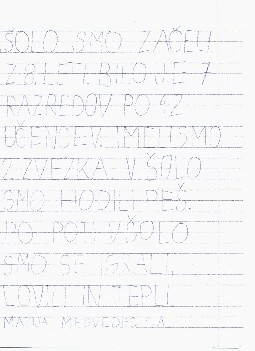 ŠOLO SMO ZAČELI
Z 8 LETI. BILO JE 7
RAZREDOV PO 42
UČENCEV. IMELI SMO
2 ZVEZKA. V ŠOLO
SMO HODILI PEŠ.
PO POTI V ŠOLO
SMO SE IGRALI,
LOVILI IN TEPLI.